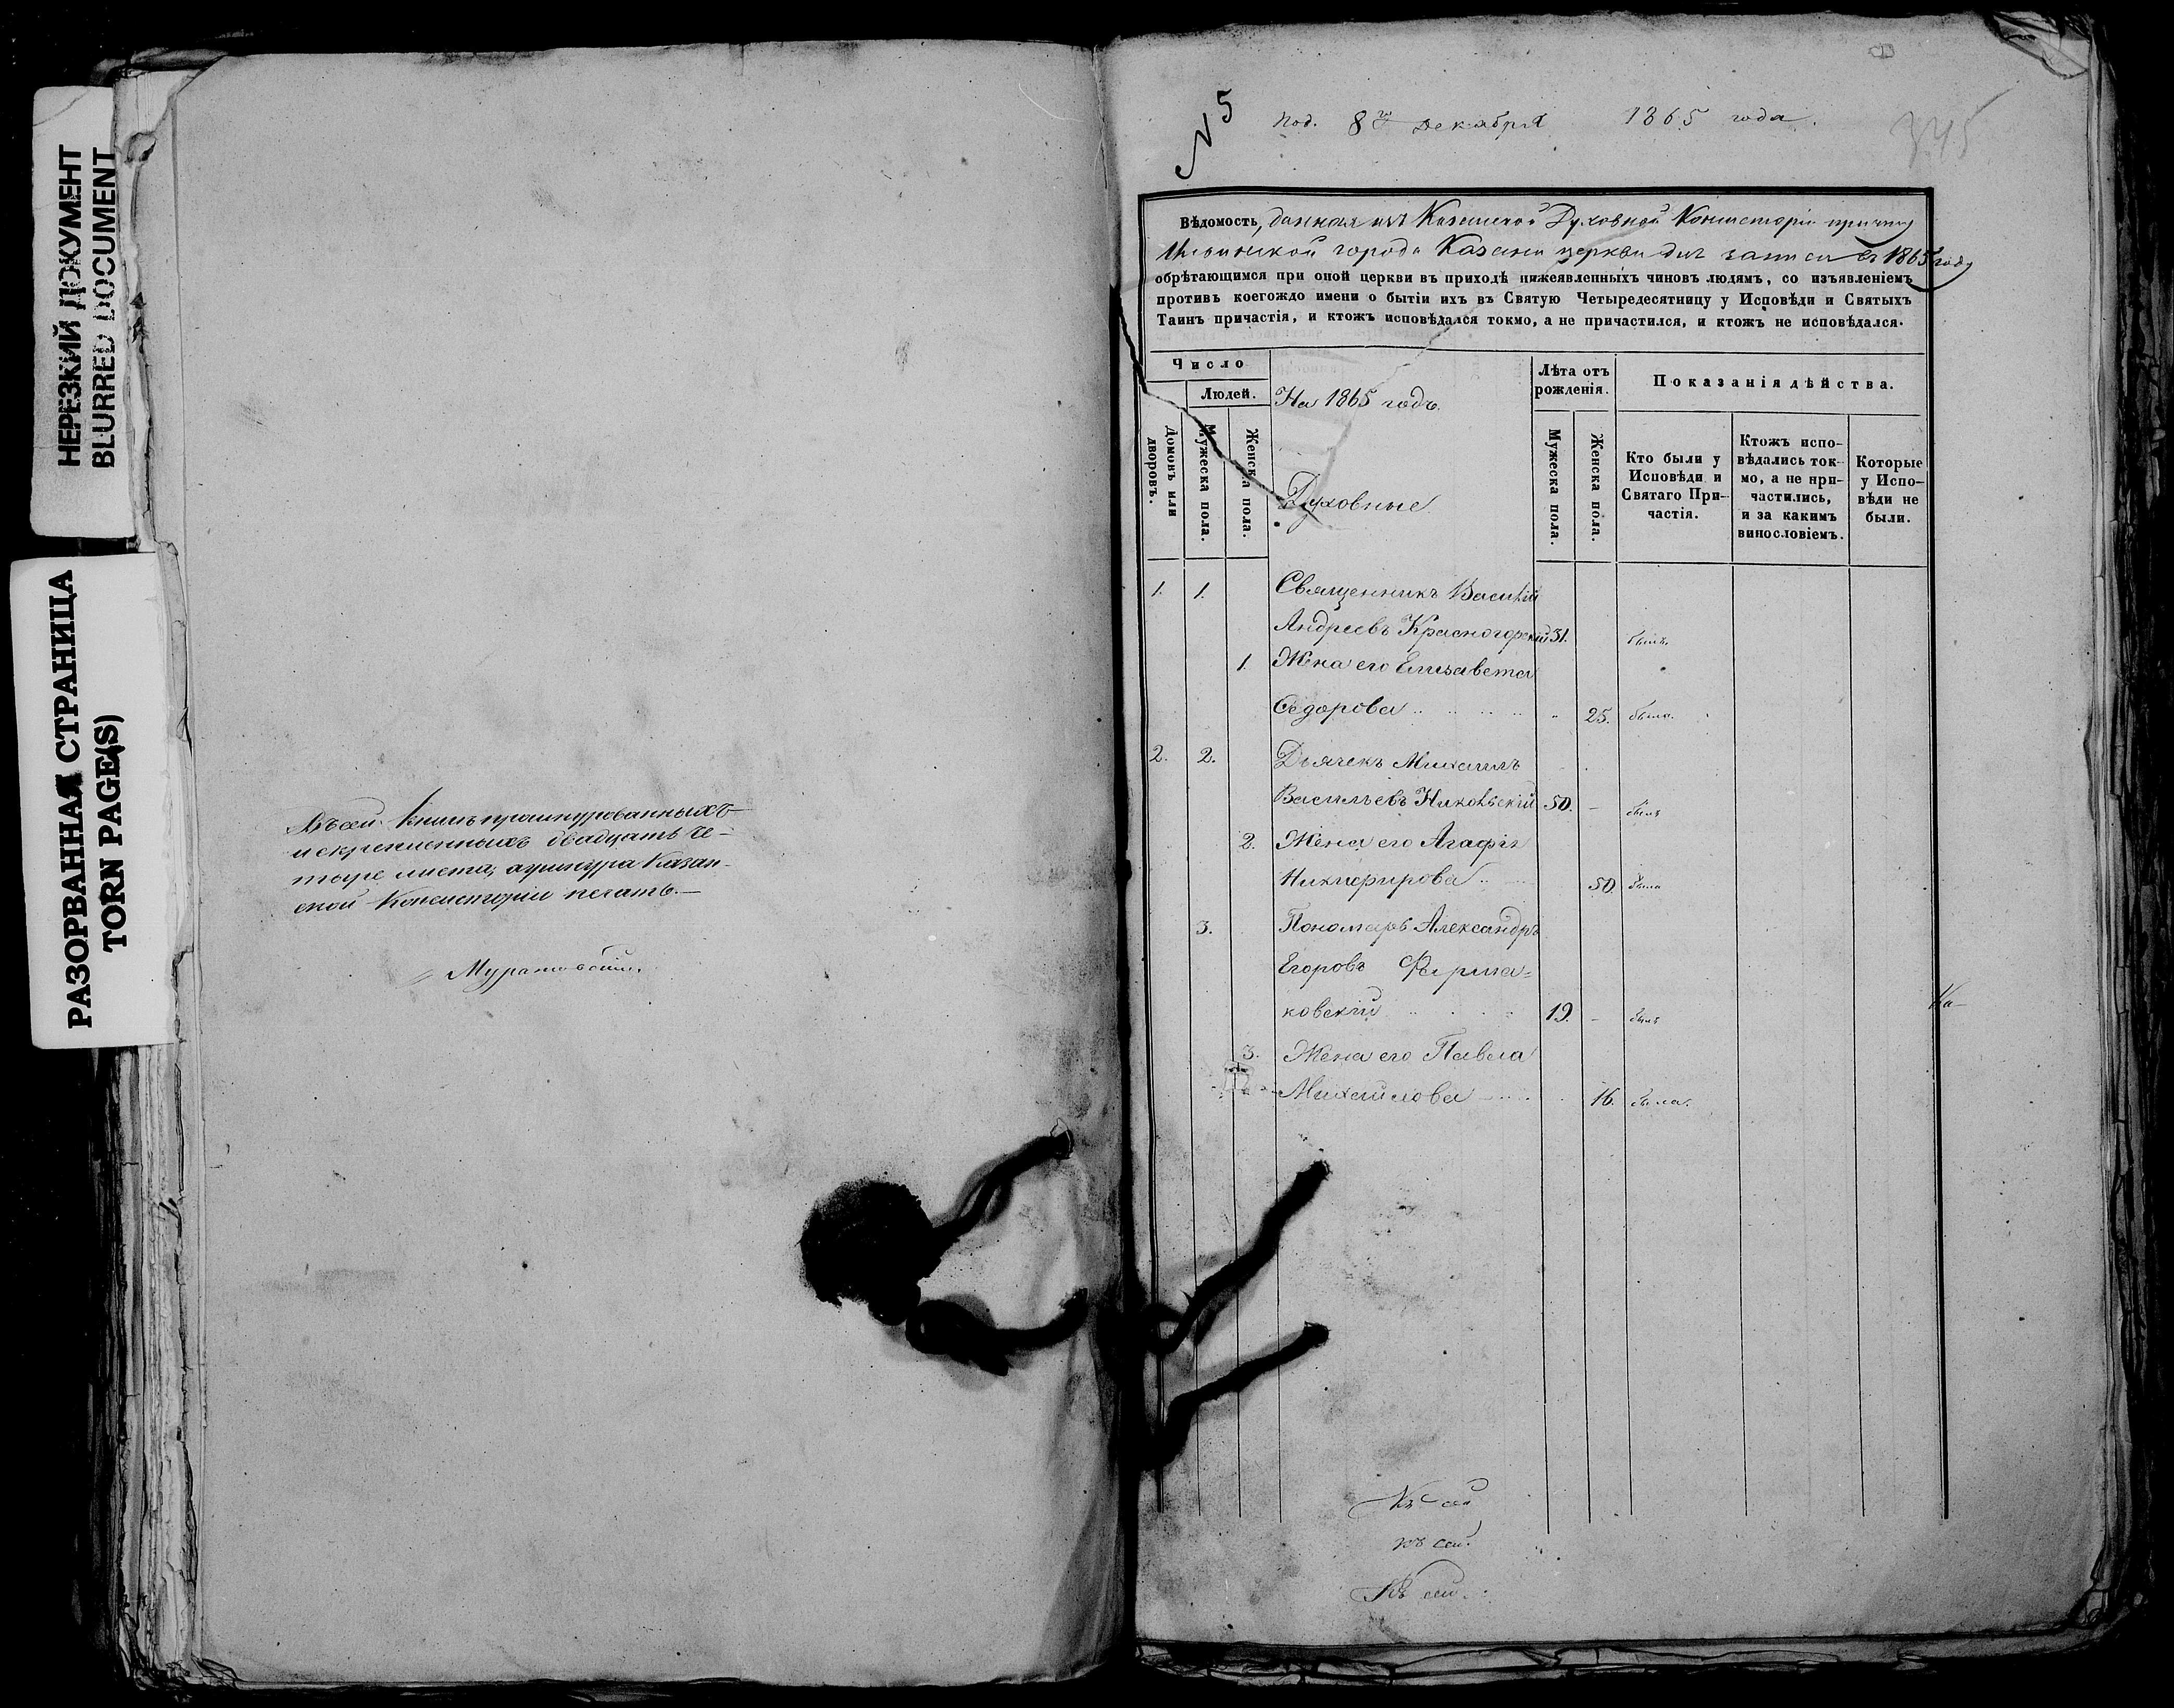 НЕРЕЗКИЙ ДОКУМЕНТ
BLURRED DOCUMENT
РАЗОРВАННАЯ СТРАНИЦА
TORN PAGE(S)
Въ сей книгѣ прошнурованныхъ
и скрѣпленныхъ двадцать че-
тыре листа, а у шнура Казан-
ской Консисторіи печать.
N 5
под. 8го Декабря 1865 года.
345
Вѣдомость, данная изъ Казанской Духовной Консисторіи причту
Ильинской города Казани церкви для записи въ 1865 году
обрѣтающимся при оной церкви въ приходѣ нижеявленныхъ чиновъ людямъ, со изъявленіемъ
противъ коегождо имени о бытіи ихъ въ Святую Четыредесятницу у Исповѣди и Святыхъ
Таинъ причастія, и ктожъ исповѣдался токмо, а не причастился, и ктожъ не исповѣдался.
Число
Людей.
Домовъ или дворовъ.
Мужеска пола.
Женска пола.
На 1865 годъ.
Духовные
Лѣта отъ рожденія.
Мужеска пола.
Женска пола.
Показанія дѣйства.
Кто были у Исповѣди и Святаго При-частія.
Ктожъ испо-вѣдались ток-мо, а не при-частились, и за какимъ винословіемъ.
Которые у Испо-вѣди не были.
1. 1. Священникъ Василій
Андреевъ Красногорскій 31. былъ
1. Жена его Елизавета
Ѳедорова 25. была.
2. 2. Дьячекъ Михаилъ
Васильевъ Никольскій 50. – былъ
2. Жена его Агафія
Никифирова 50. была
3. Пономарь Александръ
Егоровъ Фирма=
ковскій 19. – былъ
3. Жена его Павла
Михайлова 16. была.
На-
Къ сей
къ сей
Къ сей